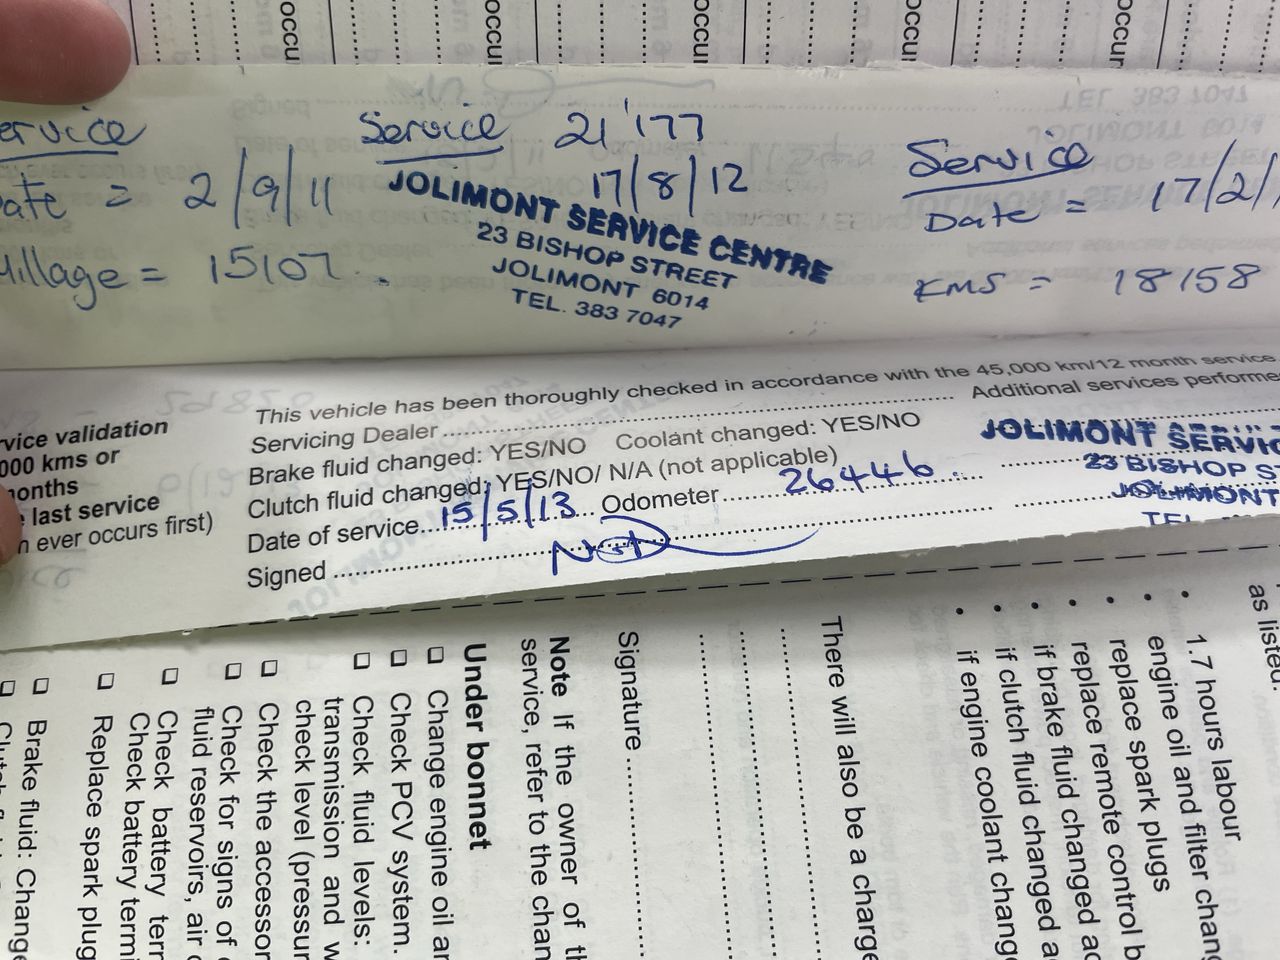 occu
occur
occur
occur
occur
Service 21'177
17/8/12
Date = 2/9/11
= 15107
JOLIMONT SERVICE CENTRE
23 BISHOP STREET
JOLIMONT 6014
TEL. 383 7047
Service
Date = 17/2/
KMS = 18158
This vehicle has been thoroughly checked in accordance with the 45,000 km/12 month service
Servicing Dealer
Additional services performe
Brake fluid changed: YES/NO Coolant changed: YES/NO
Clutch fluid changed: YES/NO/ N/A (not applicable)
Date of service 15/5/13 Odometer 26446
Signed
JOLIMONT SERVIC
23 BISHOP S
JOLIMONT
TEL
rvice validation
000 kms or
months
last service
n ever occurs first)
as listed.
• 1.7 hours labour
• engine oil and filter chan
• replace spark plugs
• replace remote control b
• if brake fluid changed ad
• if clutch fluid changed a
• if engine coolant chang
There will also be a charge
Signature
Note If the owner of th
service, refer to the chan
Under bonnet
☐ Change engine oil an
☐ Check PCV system.
☐ Check fluid levels:
transmission and w
check level (pressur
☐ Check the accessor
☐ Check for signs of
fluid reservoirs, air
☐ Check battery term
Check battery termi
☐ Replace spark plug
☐ Brake fluid: Change